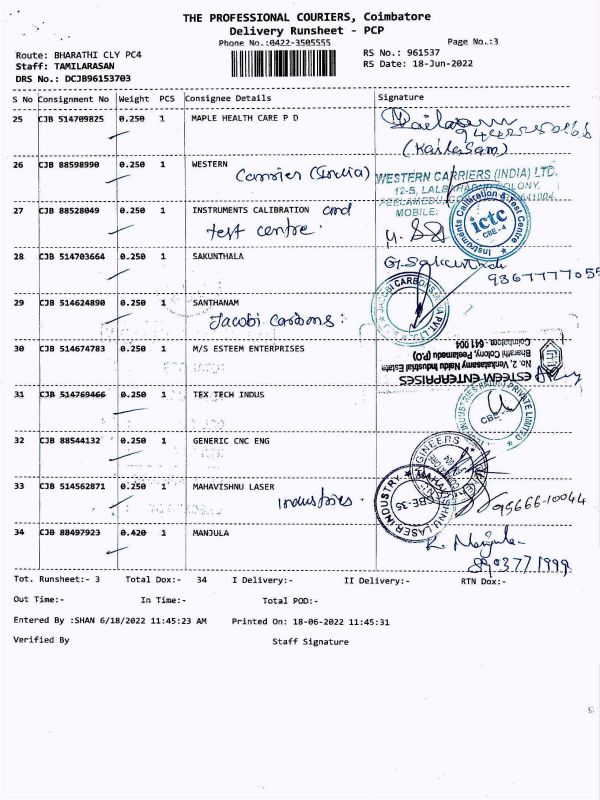 THE PROFESSIONAL COURIERS, Coimbatore
Delivery Runsheet - PCP
Phone No.:0422-3505555 Page No.:3
Route: BHARATHI CLY PC4 RS No.: 961537
Staff: TAMILARASAN RS Date: 18-Jun-2022
DRS No.: DCJB96153703
S No Consignment No Weight PCS Consignee Details Signature
25 CJB 514709825 0.250 1 MAPLE HEALTH CARE P D
(Kailasam)
26 CJB 88598990 0.250 1 WESTERN Carrier (India)
WESTERN CARRIERS (INDIA) LTD.
MOBILE:
27 CJB 88528049 0.250 1 INSTRUMENTS CALIBRATION and
test centre.
Instruments Calibration & Test Centre
ictc
CBE - 4
28 CJB 514703664 0.250 1 SAKUNTHALA
G. Sakunthala
29 CJB 514624890 0.250 1 SANTHANAM
Jacobi Carbons:
30 CJB 514674783 0.250 1 M/S ESTEEM ENTERPRISES
ESTEEM ENTERPRISES
No. 2, Venkatasamy Naidu Industrial Estate
Bharathi Colony, Peelamedu (P.O)
Coimbatore - 641 004
31 CJB 514769466 0.250 1 TEX TECH INDUS
32 CJB 88544132 0.250 1 GENERIC CNC ENG
33 CJB 514562871 0.250 1 MAHAVISHNU LASER
Industries.
MAHAVISHNU LASER INDUSTRY
CBE-35
95666-10044
34 CJB 88497923 0.420 1 MANJULA
K. Manjula
Tot. Runsheet:- 3 Total Dox:- 34 I Delivery:- II Delivery:- RTN Dox:-
Out Time:- In Time:- Total POD:-
Entered By :SHAN 6/18/2022 11:45:23 AM Printed On: 18-06-2022 11:45:31
Verified By Staff Signature